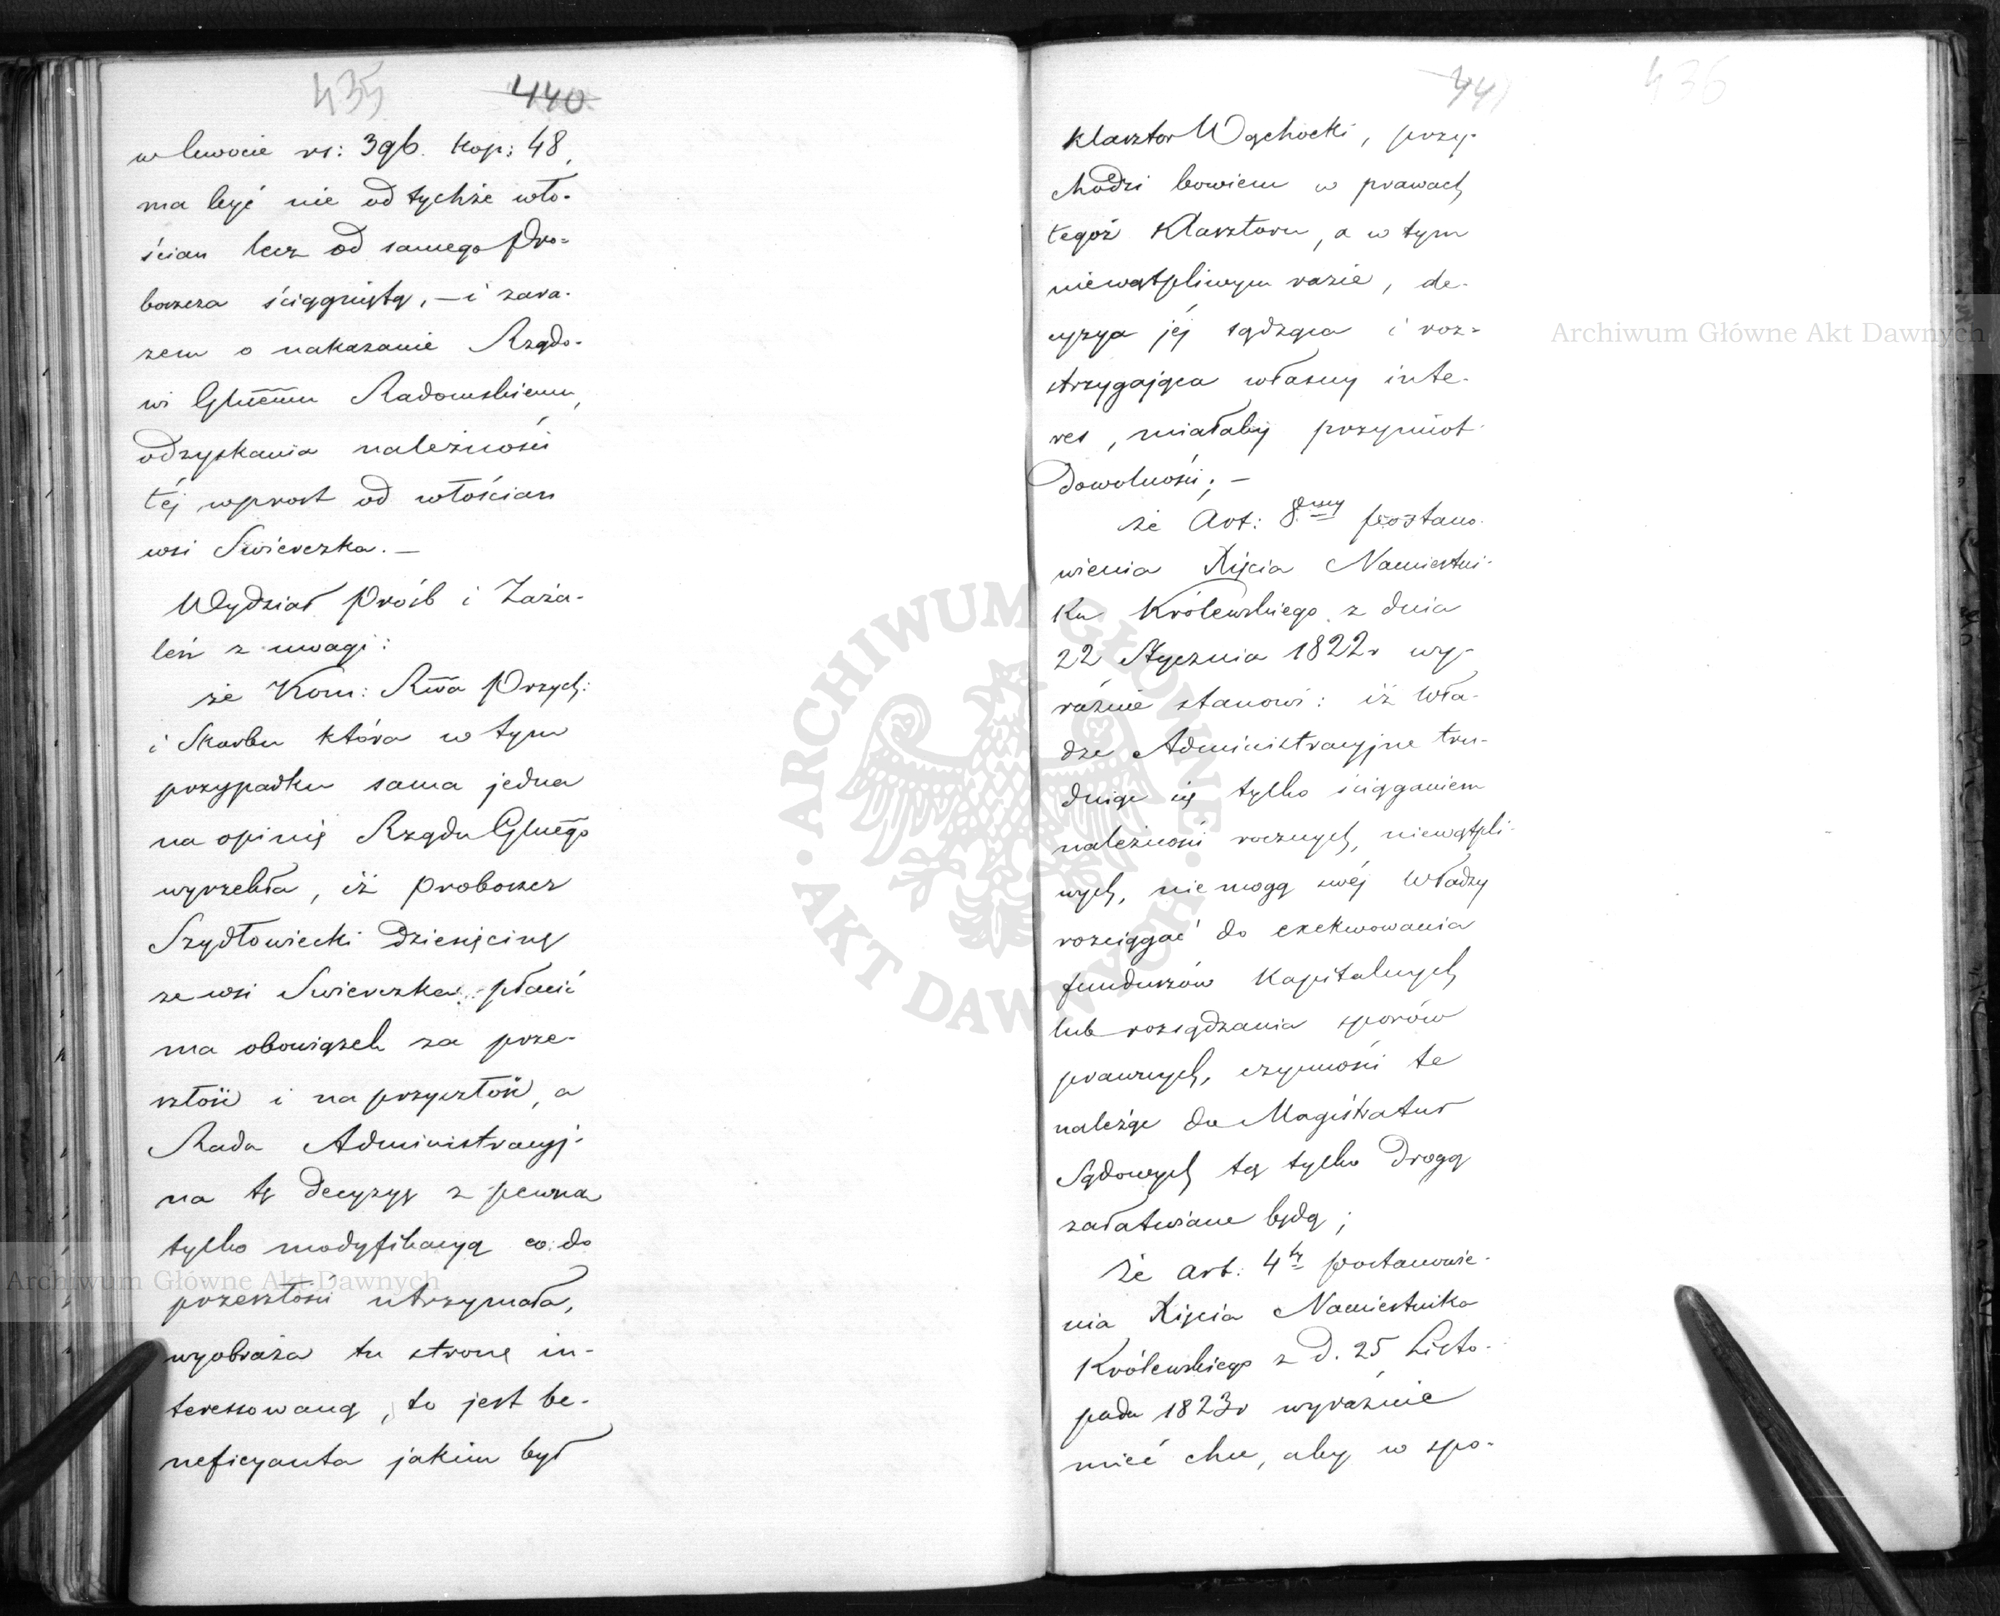 435 440
w kwocie rs: 396. kop: 48,
ma być nie od tychże wło-
ścian lecz od samego Pro-
boszcza ściągniętą, — i zara-
zem o nakazanie Rządo-
wi Gbuernu Radomskiemu,
odzyskania należności
téj wprost od włościan
wsi Swierczka. —
Wydział Próśb i Zaża-
leń z uwagi:
że Kom: Rwa Przych:
i Skarbu która w tym
przypadku sama jedna
na opinię Rządu Gbuego
wyrzekła, iż Proboszcz
Szydłowiecki dziesięcinę
ze wsi Swierczka płacić
ma obowiązek za prze-
szłość i na przyszłość, a
Rada Administracyj-
na tę decyzyę z pewną
tylko modyfikacyą co do
przeszłości utrzymała,
wyobraża tu stronę in-
teressowaną, to jest be-
neficyanta jakim był
441 436
Klasztor Wąchocki, przy-
chodzi bowiem w prawach
tegoż Klasztoru, a w tym
niewątpliwym razie, de-
cyzya jéj sądząca i roz-
strzygająca własny inte-
res, miałaby przymiot
dowolności; —
że Art: 8. postano-
wienia Xięcia Namiestni-
ka Królewskiego z dnia
22 Stycznia 1822r wy-
raźnie stanowi: iż Wła-
dze Administracyjne tru-
dniąc się tylko ściąganiem
należności rocznych, niewątpli-
wych, nie mogą swéj Władzy
rozciągać do exekwowania
funduszów Kapitalnych
lub rozsądzania sporów
prawnych, czynności te
należąc do Magistratur
Sądowych tą tylko drogą
załatwiane będą;
że art: 4ty postanowie-
nia Xięcia Namiestnika
Królewskiego z d. 25 Listo-
pada 1823r wyraźnie
mieć chce, aby w spo-
Archiwum Główne Akt Dawnych
Archiwum Główne Akt Dawnych
ARCHIWUM GŁÓWNE • AKT DAWNYCH •